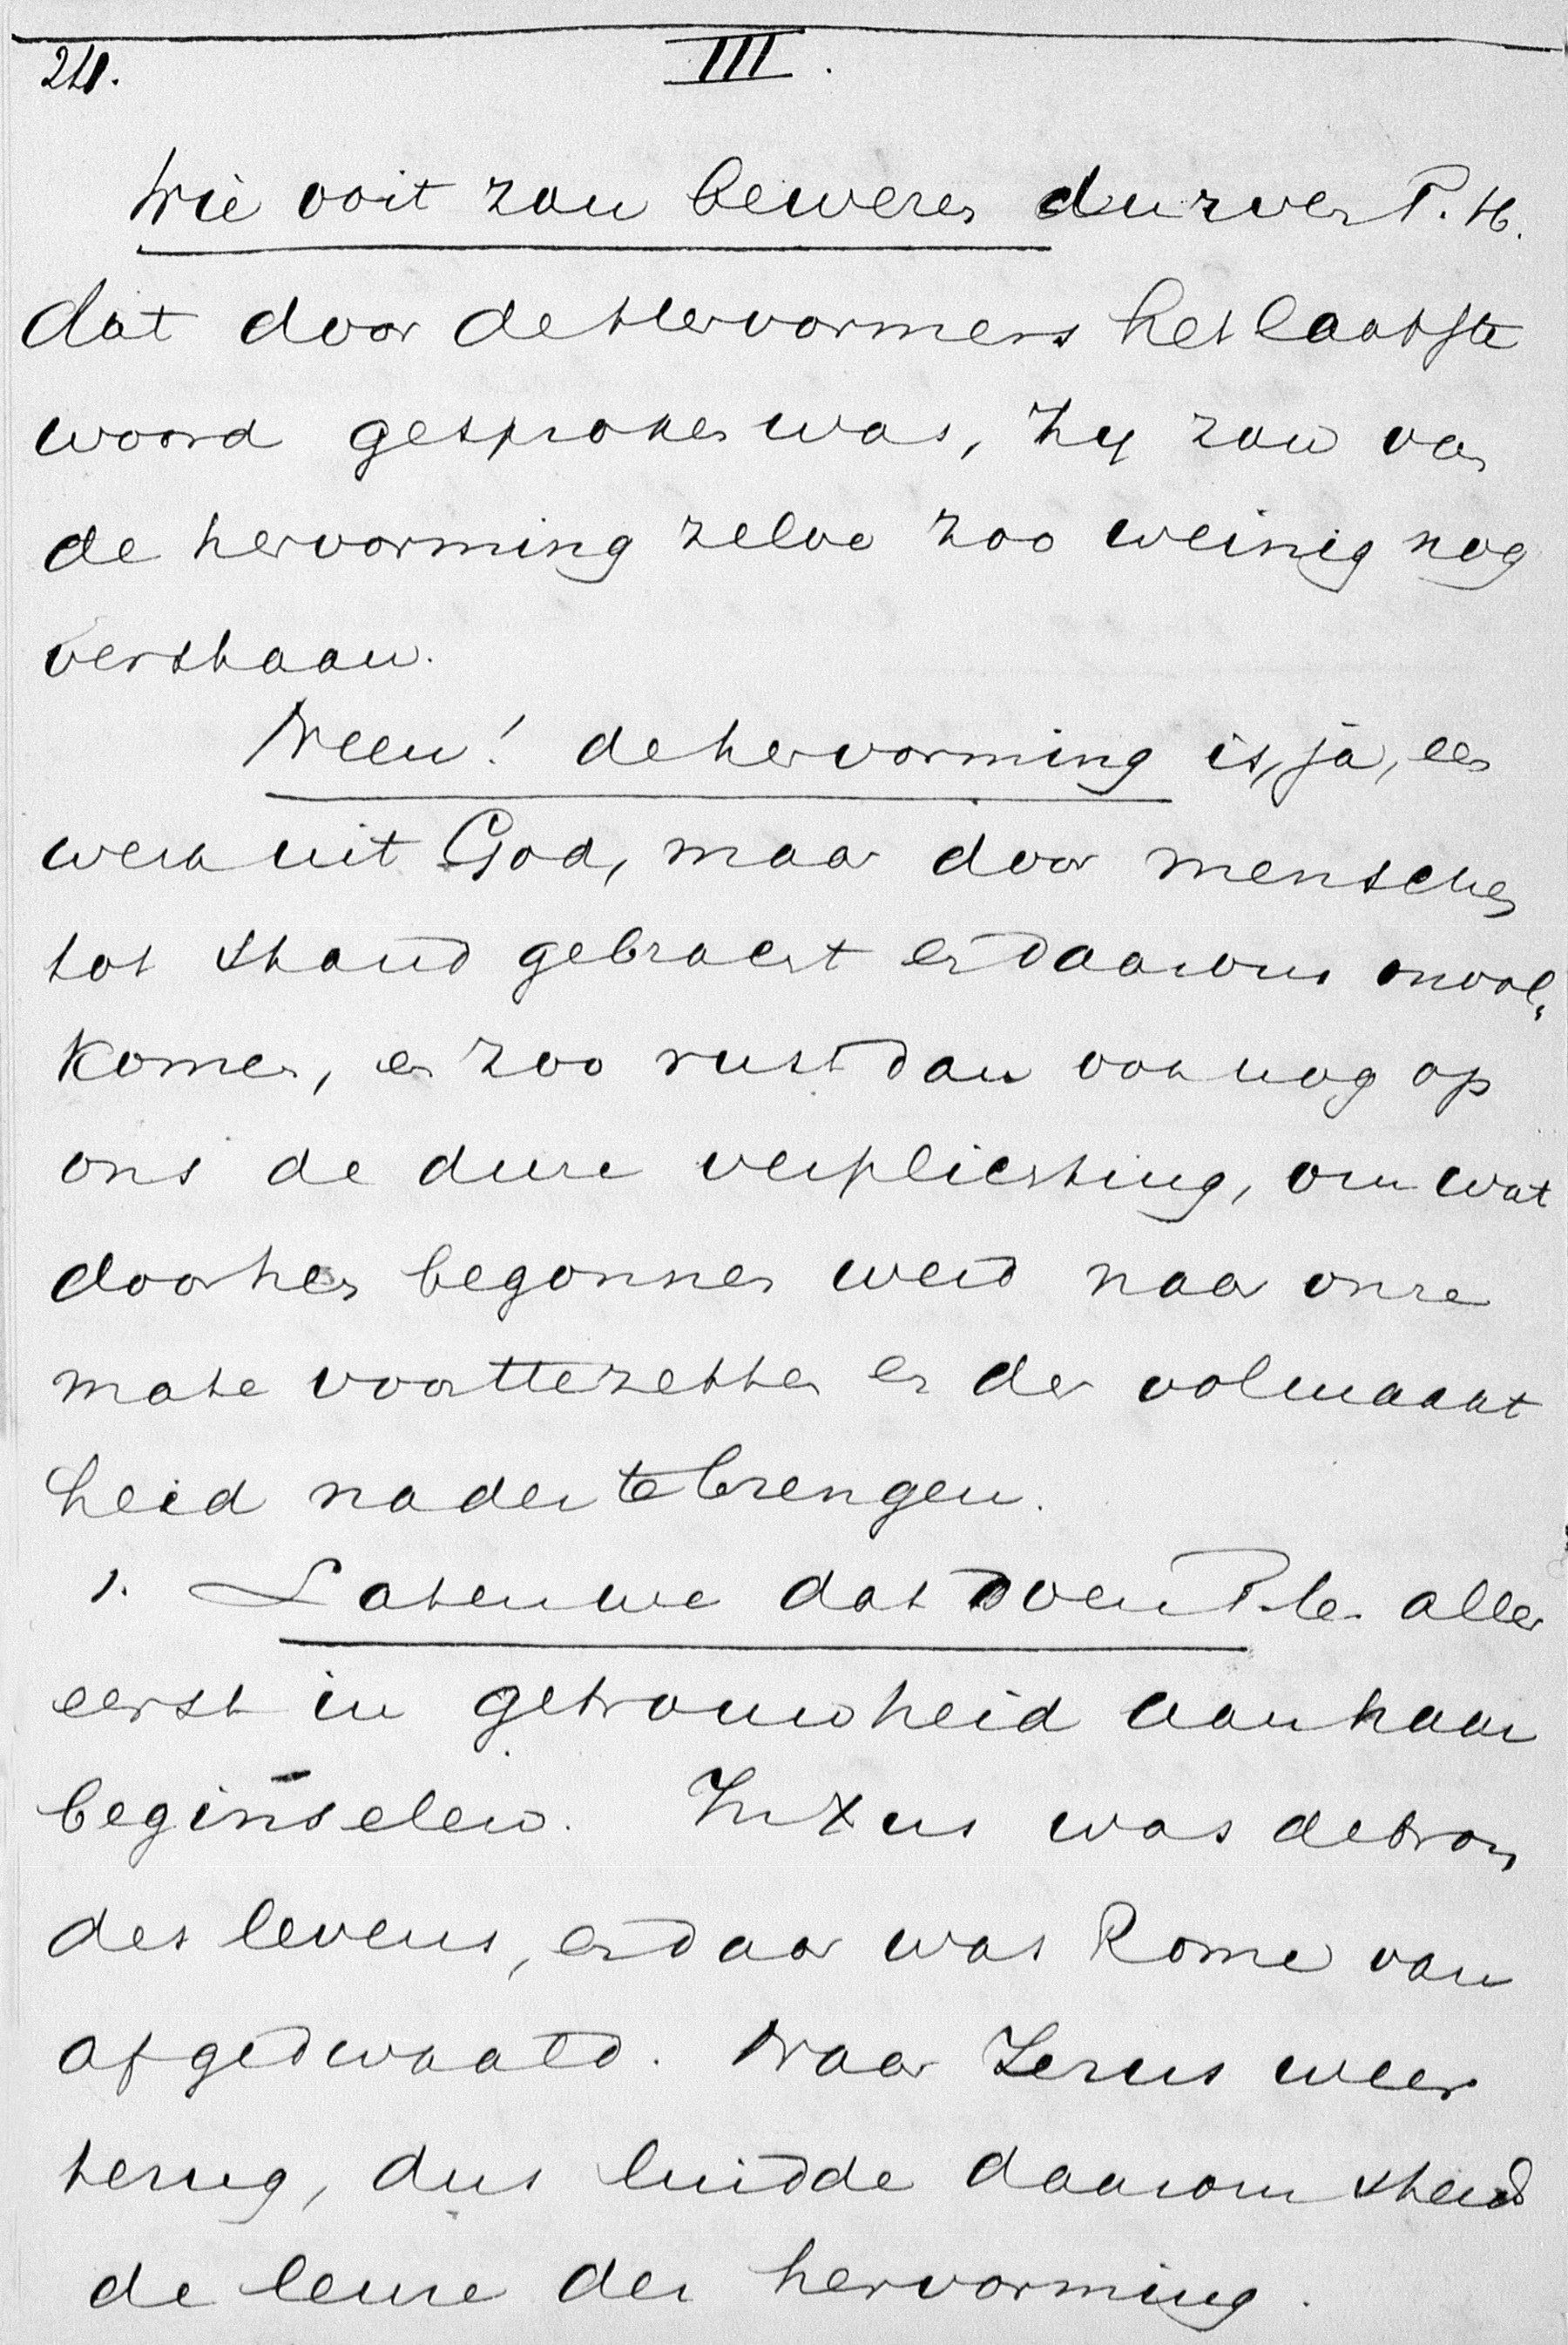 24. III.
Wie ooit zou beweren durven T. H.
dat door de Hervormers het laatste
woord gesproken was, hy zou van
de hervorming zelve zoo weinig nog
verstaan.
Neen! de hervorming is, ja, een
werk uit God, maar door menschen
tot stand gebracht en daarom onvol„
komen, en zoo rust dan ook nog op
ons de dure verplichting, om wat
door hen begonnen werd naar onze
mate voort te zetten en der volmaakt
heid nader te brengen.
1. Laten we dat doen T. H. aller
eerst in getrouwheid aan haar
beginselen. In Xus was de bron
des levens, en daar was Rome van
afgedwaald. Naar Jezus weer
terug, dus luidde daarom steeds
de leuze der hervorming.